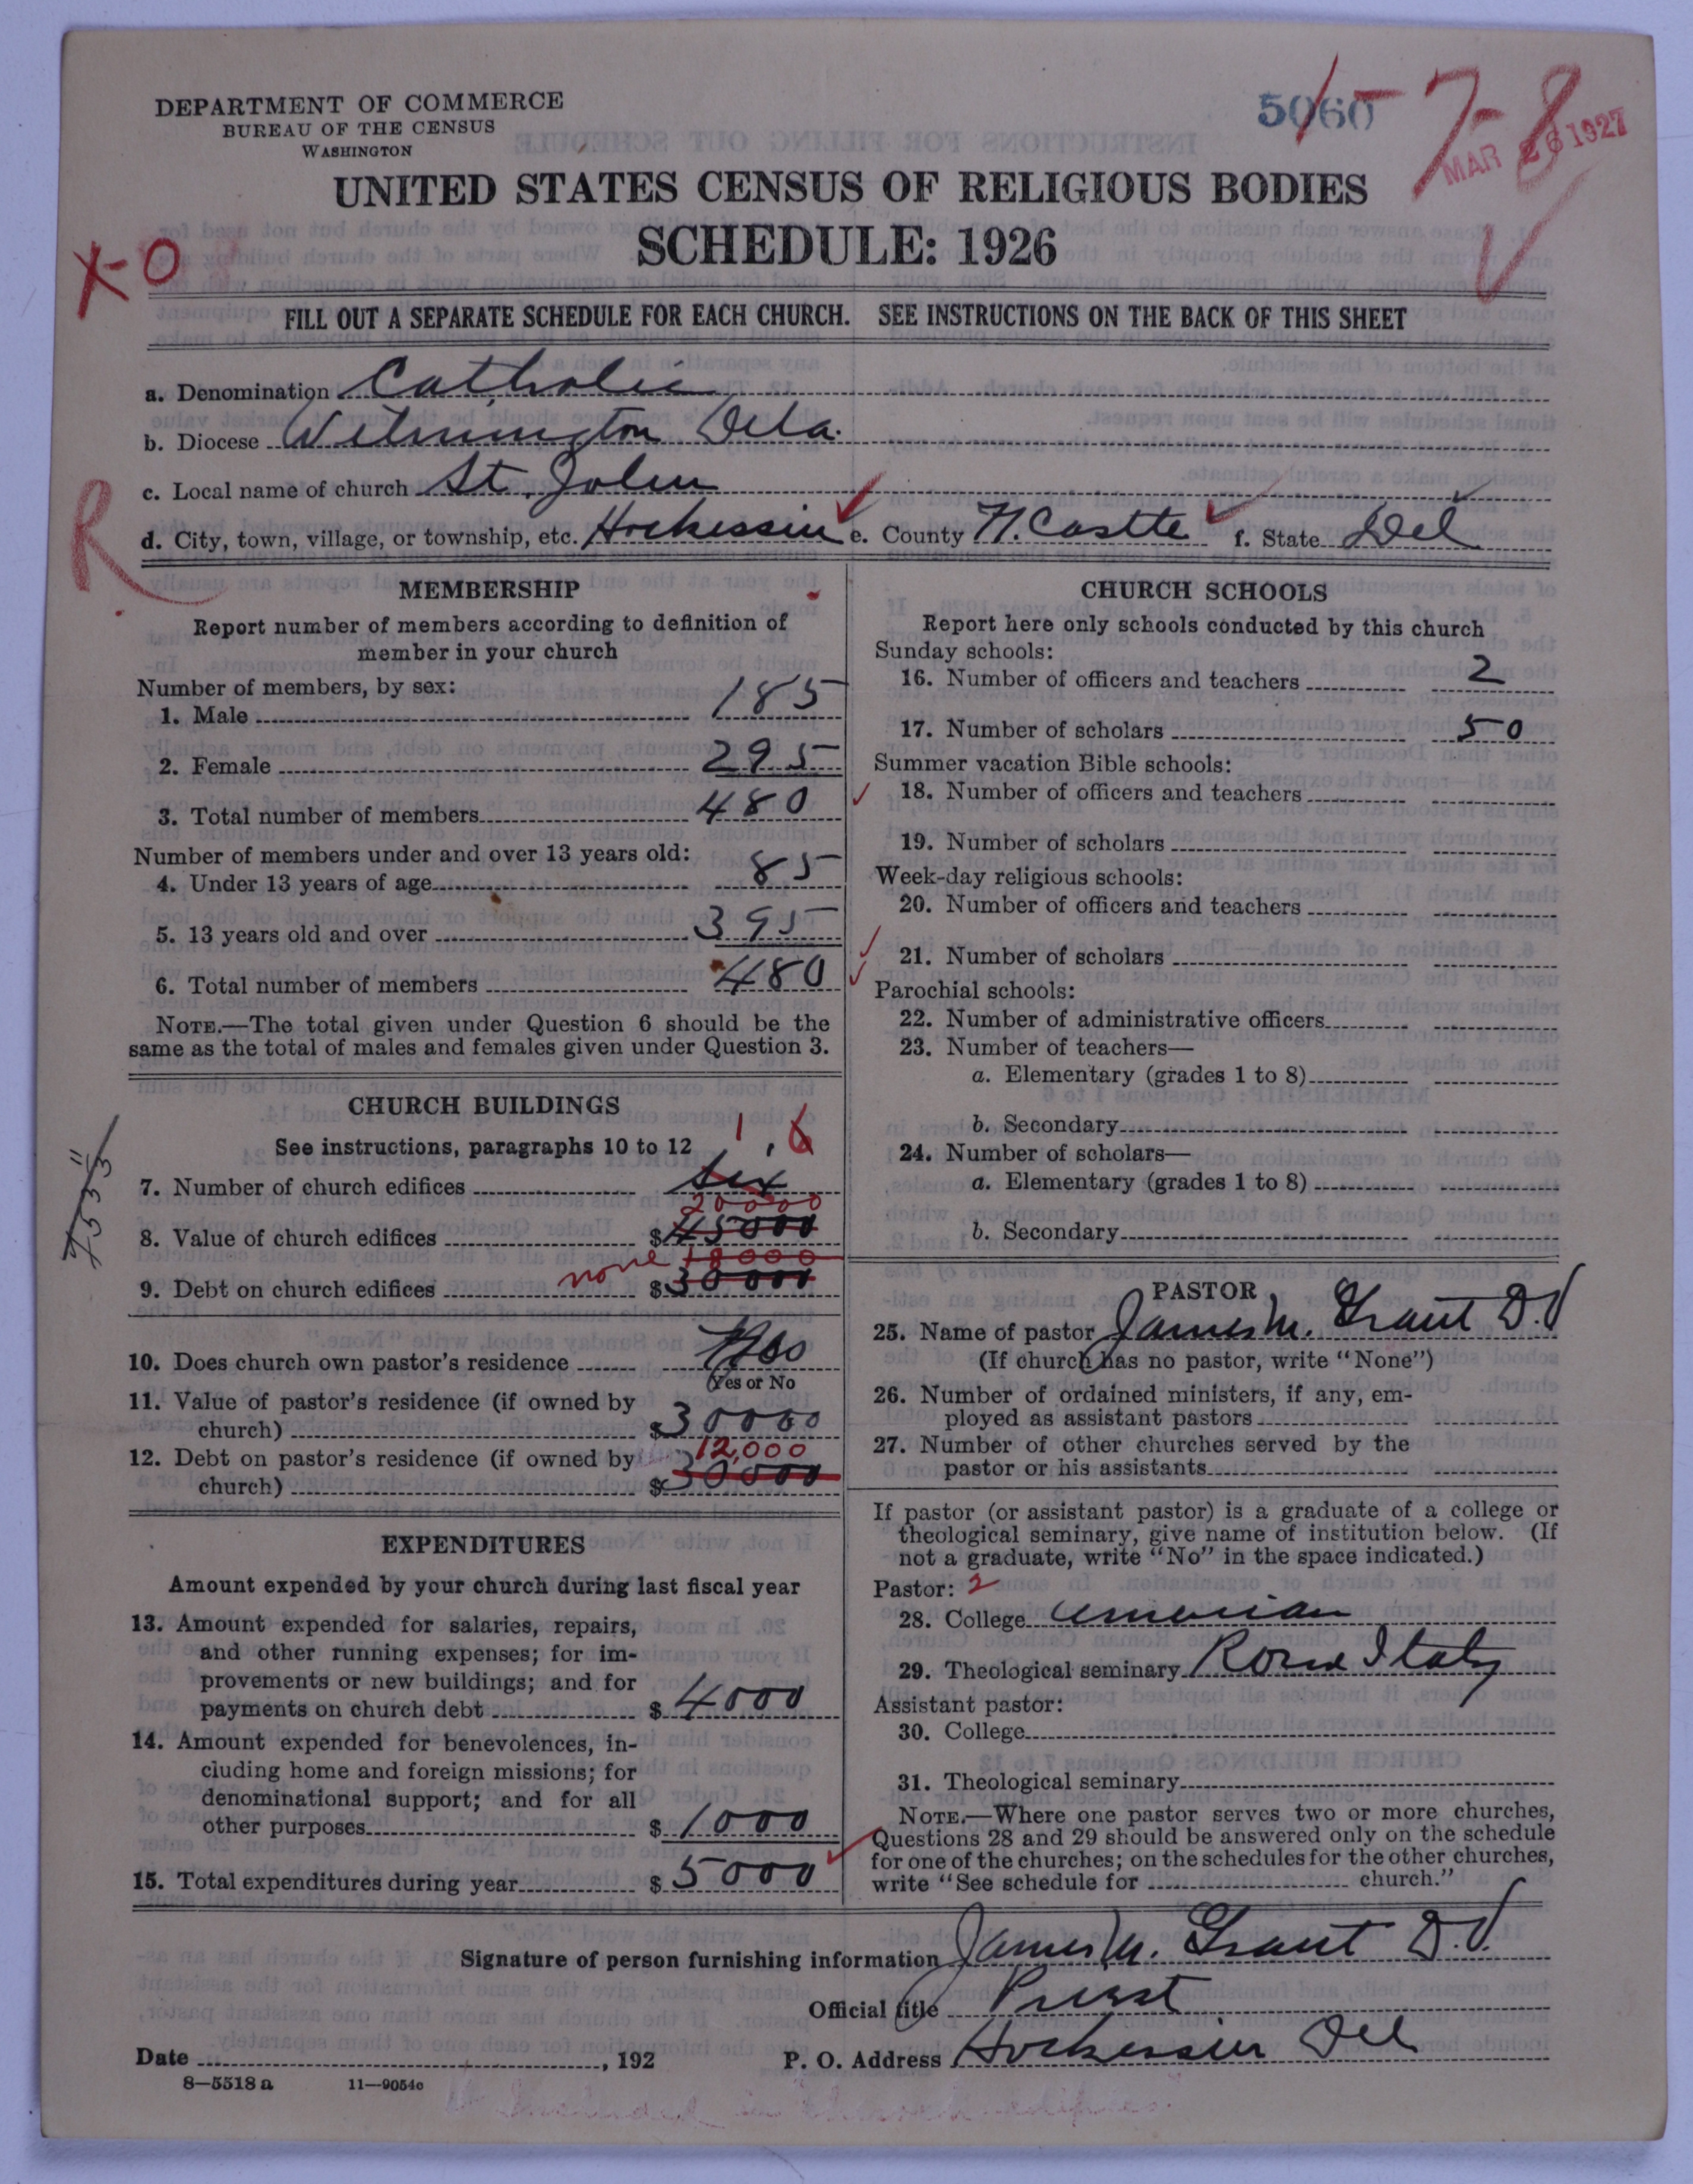 DEPARTMENT OF COMMERCE
BUREAU OF THE CENSUS
WASHINGTON
5060
7-8
MAR 26 1927
UNITED STATES CENSUS OF RELIGIOUS BODIES
SCHEDULE: 1926
X-0
FILL OUT A SEPARATE SCHEDULE FOR EACH CHURCH. SEE INSTRUCTIONS ON THE BACK OF THIS SHEET
a. Denomination Catholic
b. Diocese Wilmington Dela.
c. Local name of church St. John
R
d. City, town, village, or township, etc. Hockessin e. County N. Castle f. State Del
MEMBERSHIP
Report number of members according to definition of
member in your church
Number of members, by sex:
1. Male 185
2. Female 295
3. Total number of members 480
Number of members under and over 13 years old:
4. Under 13 years of age 85
5. 13 years old and over 395
6. Total number of members 480
NOTE.—The total given under Question 6 should be the
same as the total of males and females given under Question 3.
CHURCH BUILDINGS
See instructions, paragraphs 10 to 12
1 6
7. Number of church edifices six
20000
8. Value of church edifices $45000
none 18000
9. Debt on church edifices $30000
10. Does church own pastor's residence Yes
(Yes or No
11. Value of pastor's residence (if owned by
church) $30000
12,000
12. Debt on pastor's residence (if owned by
church) $30000
EXPENDITURES
Amount expended by your church during last fiscal year
13. Amount expended for salaries, repairs,
and other running expenses; for im-
provements or new buildings; and for
payments on church debt $4000
14. Amount expended for benevolences, in-
cluding home and foreign missions; for
denominational support; and for all
other purposes $1000
15. Total expenditures during year $5000
CHURCH SCHOOLS
Report here only schools conducted by this church
Sunday schools:
16. Number of officers and teachers 2
17. Number of scholars 50
Summer vacation Bible schools:
18. Number of officers and teachers
19. Number of scholars
Week-day religious schools:
20. Number of officers and teachers
21. Number of scholars
Parochial schools:
22. Number of administrative officers
23. Number of teachers—
a. Elementary (grades 1 to 8)
b. Secondary
24. Number of scholars—
a. Elementary (grades 1 to 8)
b. Secondary
PASTOR
25. Name of pastor James M. Grant D.D
(If church has no pastor, write "None")
26. Number of ordained ministers, if any, em-
ployed as assistant pastors
27. Number of other churches served by the
pastor or his assistants
If pastor (or assistant pastor) is a graduate of a college or
theological seminary, give name of institution below. (If
not a graduate, write "No" in the space indicated.)
Pastor: 2
28. College American
29. Theological seminary Rome Italy
Assistant pastor:
30. College
31. Theological seminary
NOTE.—Where one pastor serves two or more churches,
Questions 28 and 29 should be answered only on the schedule
for one of the churches; on the schedules for the other churches,
write "See schedule for church."
Signature of person furnishing information James M. Grant D.D.
Official title Priest
Date , 192 P. O. Address Hockessin Del
8—5518 a 11—9054c